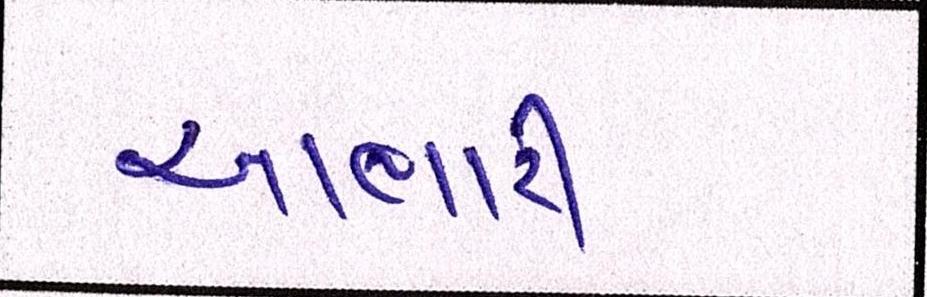 આભારી